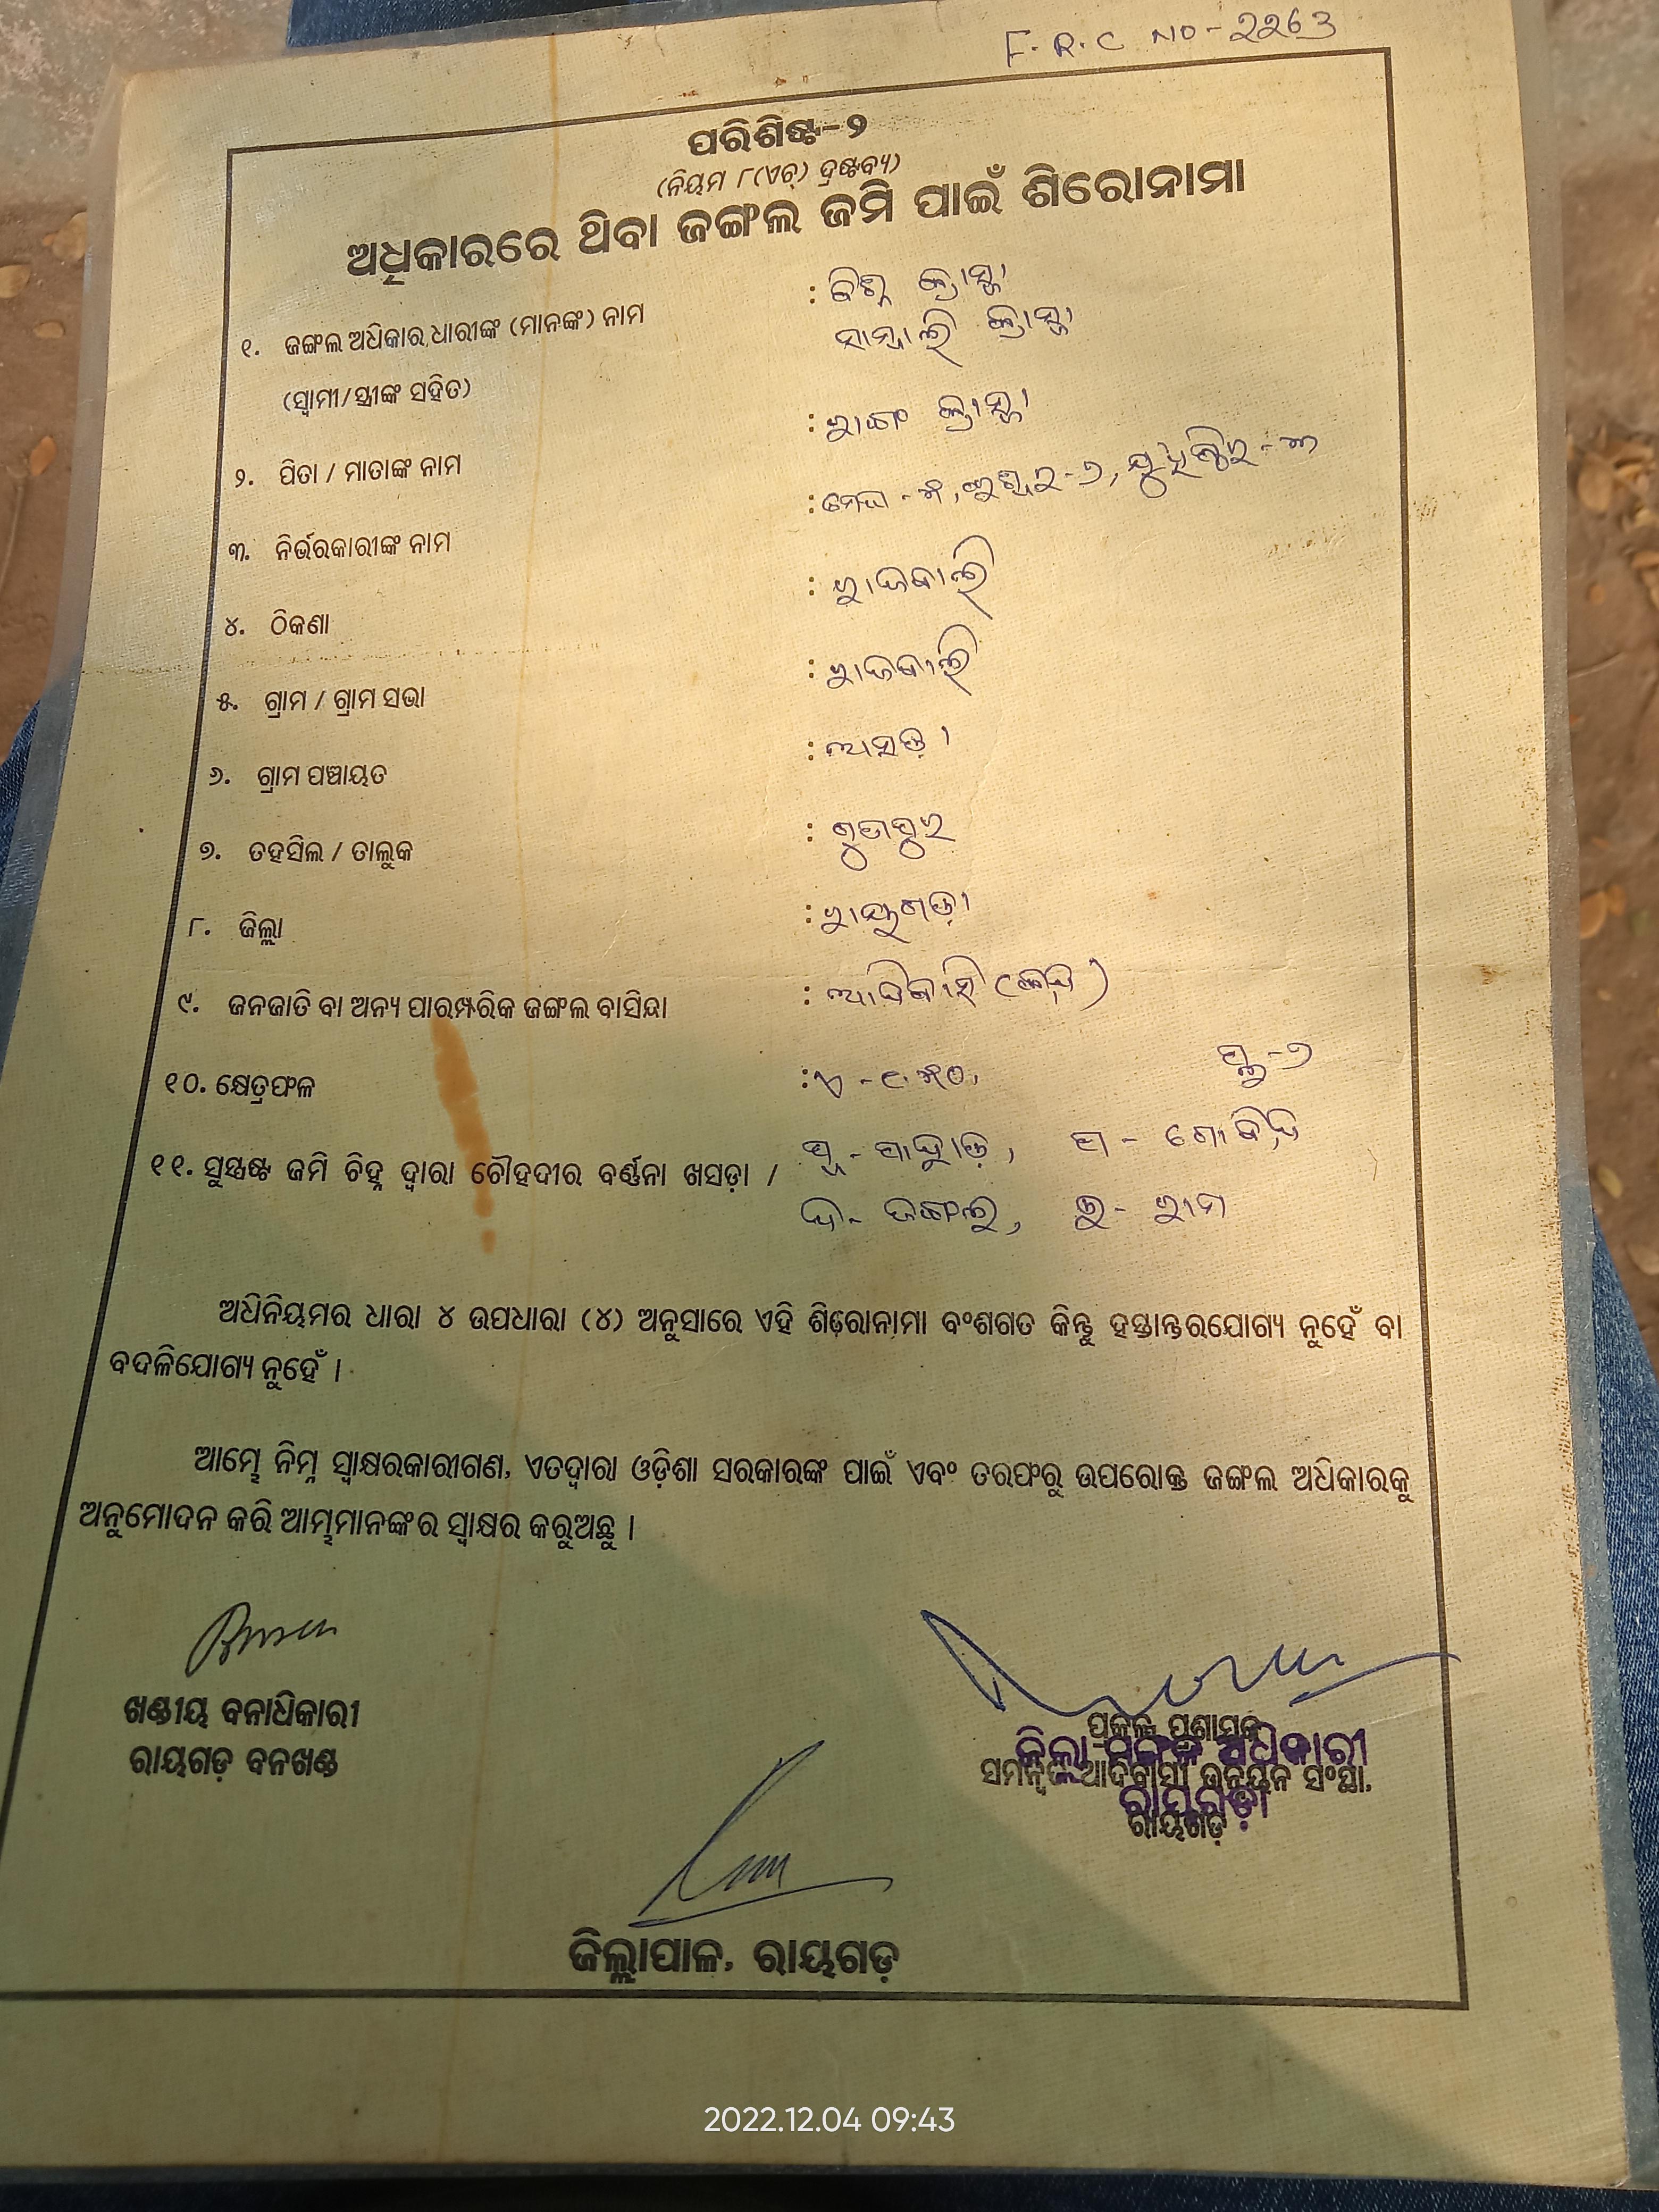 F.R.C NO-2263
ପରିଶିଷ୍ଟ-୨
(ନିୟମ ୮(ଏଚ୍) ଦ୍ରଷ୍ଟବ୍ୟ)
ଅଧିକାରରେ ଥିବା ଜଙ୍ଗଲ ଜମି ପାଇଁ ଶିରୋନାମା
୧. ଜଙ୍ଗଲ ଅଧିକାର ଧାରୀଙ୍କ (ମାନଙ୍କ) ନାମ :
(ସ୍ୱାମୀ/ସ୍ତ୍ରୀଙ୍କ ସହିତ)
୨. ପିତା / ମାତାଙ୍କ ନାମ :
୩. ନିର୍ଭରକାରୀଙ୍କ ନାମ :
୪. ଠିକଣା : ରାଜବାଲି
୫. ଗ୍ରାମ / ଗ୍ରାମ ସଭା : ରାଜବାଲି
୬. ଗ୍ରାମ ପଞ୍ଚାୟତ :
୭. ତହସିଲ / ତାଲୁକ : ଗୁଣୁପୁର
୮. ଜିଲ୍ଲା : ରାୟଗଡ଼ା
୯. ଜନଜାତି ବା ଅନ୍ୟ ପାରମ୍ପରିକ ଜଙ୍ଗଲ ବାସିନ୍ଦା : ଆଦିବାସି
୧୦. କ୍ଷେତ୍ରଫଳ :
୧୧. ସୁସ୍ପଷ୍ଟ ଜମି ଚିହ୍ନ ଦ୍ୱାରା ଚୌହଦୀର ବର୍ଣ୍ଣନା ଖସଡ଼ା / ପୂ - ପାହାଡ଼, ପ - ଗୋବିନ୍ଦ
ଦ - ଜଙ୍ଗଲ, ଉ - ରାମ
ଅଧିନିୟମର ଧାରା ୪ ଉପଧାରା (୪) ଅନୁସାରେ ଏହି ଶିରୋନାମା ବଂଶଗତ କିନ୍ତୁ ହସ୍ତାନ୍ତରଯୋଗ୍ୟ ନୁହେଁ ବା
ବଦଳିଯୋଗ୍ୟ ନୁହେଁ ।
ଆମ୍ଭେ ନିମ୍ନ ସ୍ୱାକ୍ଷରକାରୀଗଣ, ଏତଦ୍ୱାରା ଓଡ଼ିଶା ସରକାରଙ୍କ ପାଇଁ ଏବଂ ତରଫରୁ ଉପରୋକ୍ତ ଜଙ୍ଗଲ ଅଧିକାରକୁ
ଅନୁମୋଦନ କରି ଆମ୍ଭମାନଙ୍କର ସ୍ୱାକ୍ଷର କରୁଅଛୁ ।
ଖଣ୍ଡୀୟ ବନାଧିକାରୀ
ରାୟଗଡ଼ ବନଖଣ୍ଡ
ପ୍ରକଳ୍ପ ପ୍ରଶାସକ
ଜିଲ୍ଲା ମଙ୍ଗଳ ଅଧିକାରୀ
ସମନ୍ୱିତ ଆଦିବାସୀ ଉନ୍ନୟନ ସଂସ୍ଥା,
ରାୟଗଡ଼ା
ରାୟଗଡ଼
ଜିଲ୍ଲାପାଳ, ରାୟଗଡ଼
2022.12.04 09:43